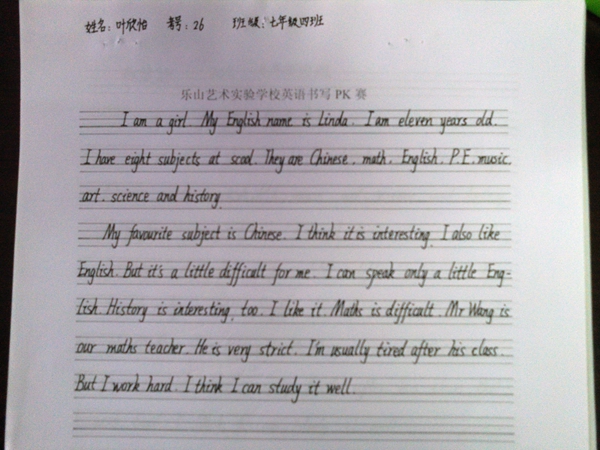 姓名：叶欣怡 考号：26 班级：七年级四班
乐山艺术实验学校英语书写 PK 赛
I am a girl. My English name is Linda. I am eleven years old.
I have eight subjects at scool. They are Chinese, math, English, P.E, music,
art, science and history.
My favourite subject is Chinese. I think it is interesting. I also like
English. But it's a little difficult for me. I can speak only a little Eng-
lish. History is interesting, too. I like it. Maths is difficult. Mr Wang is
our maths teacher. He is very strict. I'm usually tired after his class.
But I work hard. I think I can study it well.